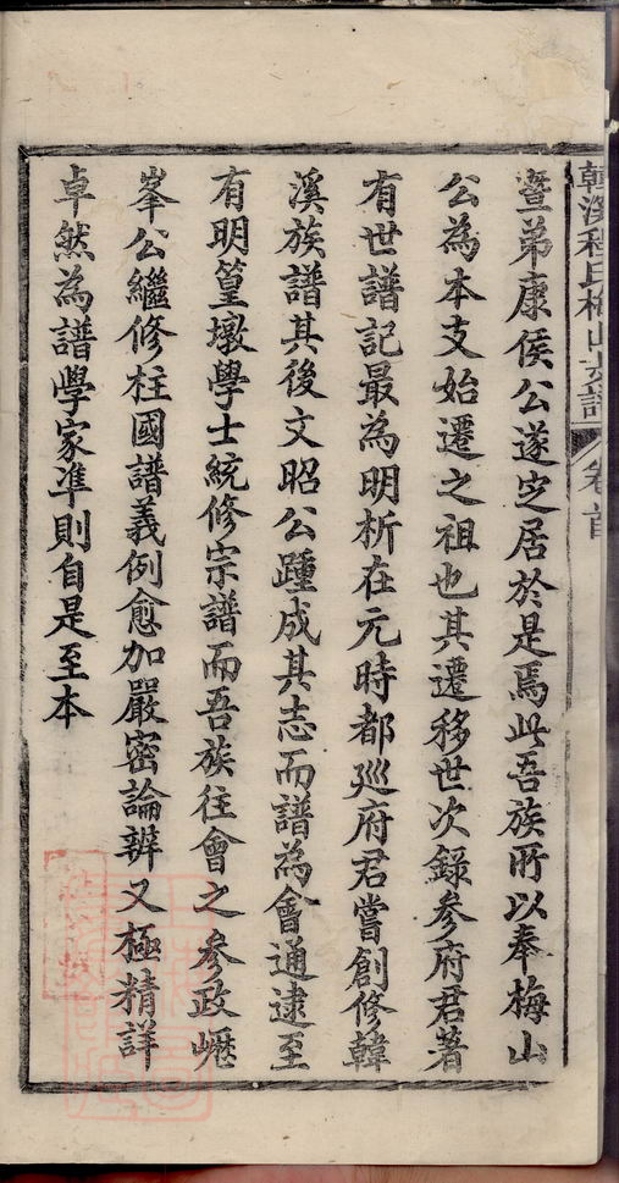 韓溪程氏梅山支譜 卷首
暨弟康侯公遂定居於是焉此吾族所以奉梅山
公為本支始遷之祖也其遷移世次錄參府君著
有世譜記最為明析在元時都廵府君嘗創修韓
溪族譜其後文昭公踵成其志而譜為會通逮至
有明篁墩學士統修宗譜而吾族往會之參政㠣
峯公繼修柱國譜義例愈加嚴密論辨又極精詳
卓然為譜學家準則自是至本